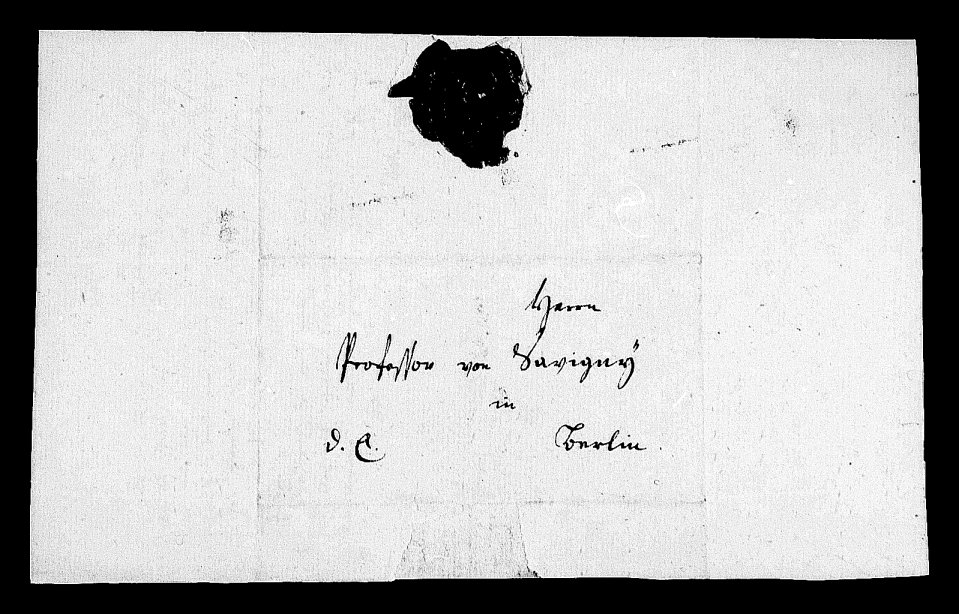 Herrn
Professor von Savigny
in
d. E. Berlin.